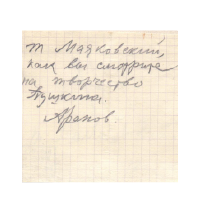 т Маяковский,
как вы смотрите
на творчество
Пушкина.
Арапов.